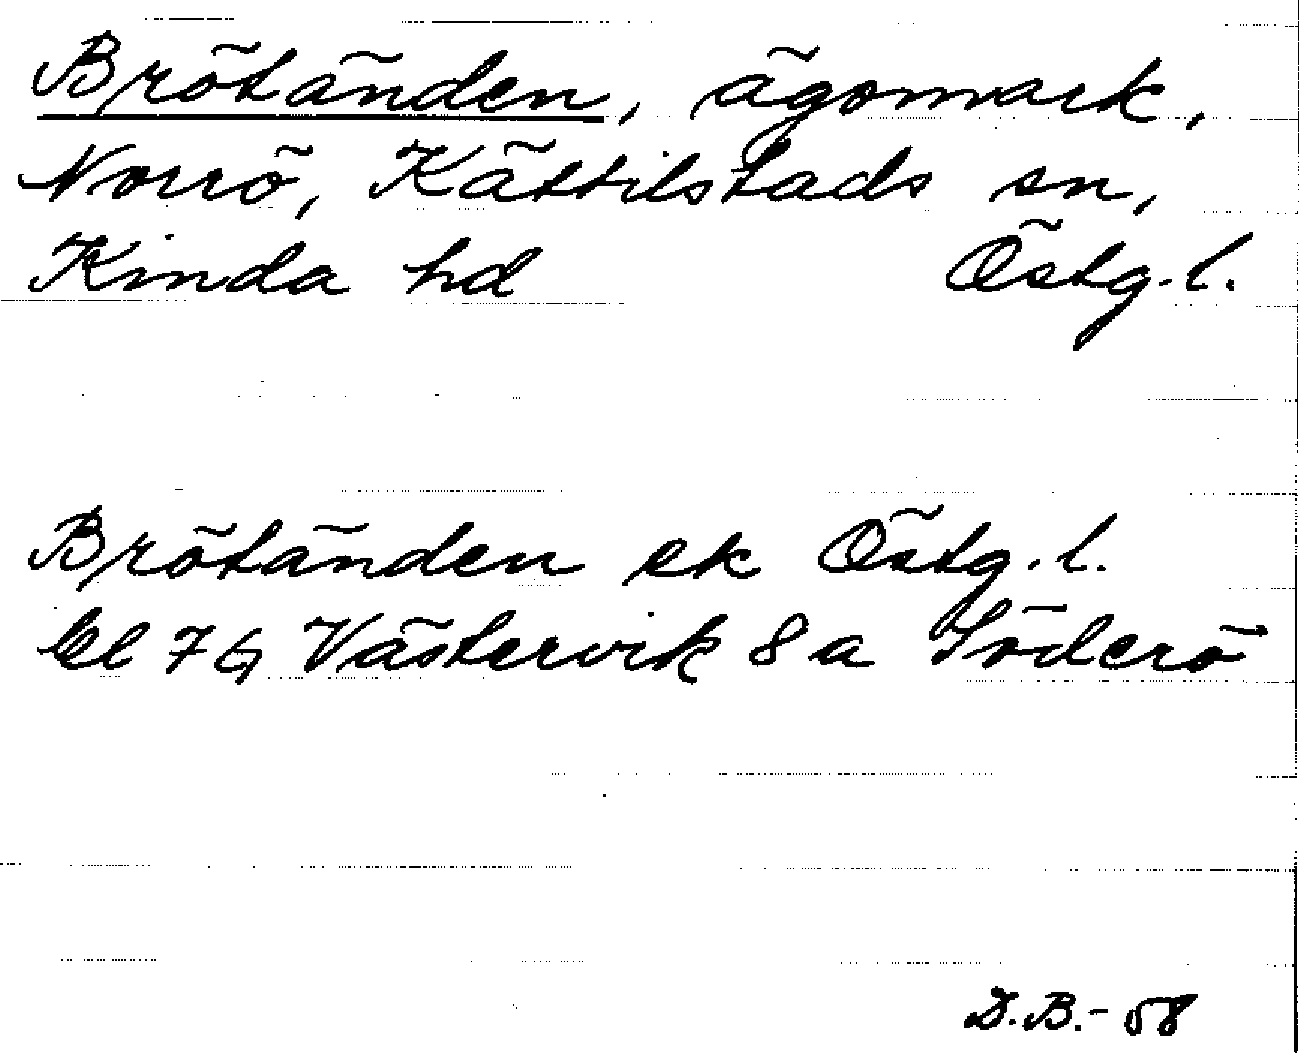 Brötänden, ägomark,
Norrö, Kättilstads sn,
Kinda hd Östg. l.
Brötänden ek Östg. l.
bl 7 G Västervik 8 a Söderö
D.B.-58